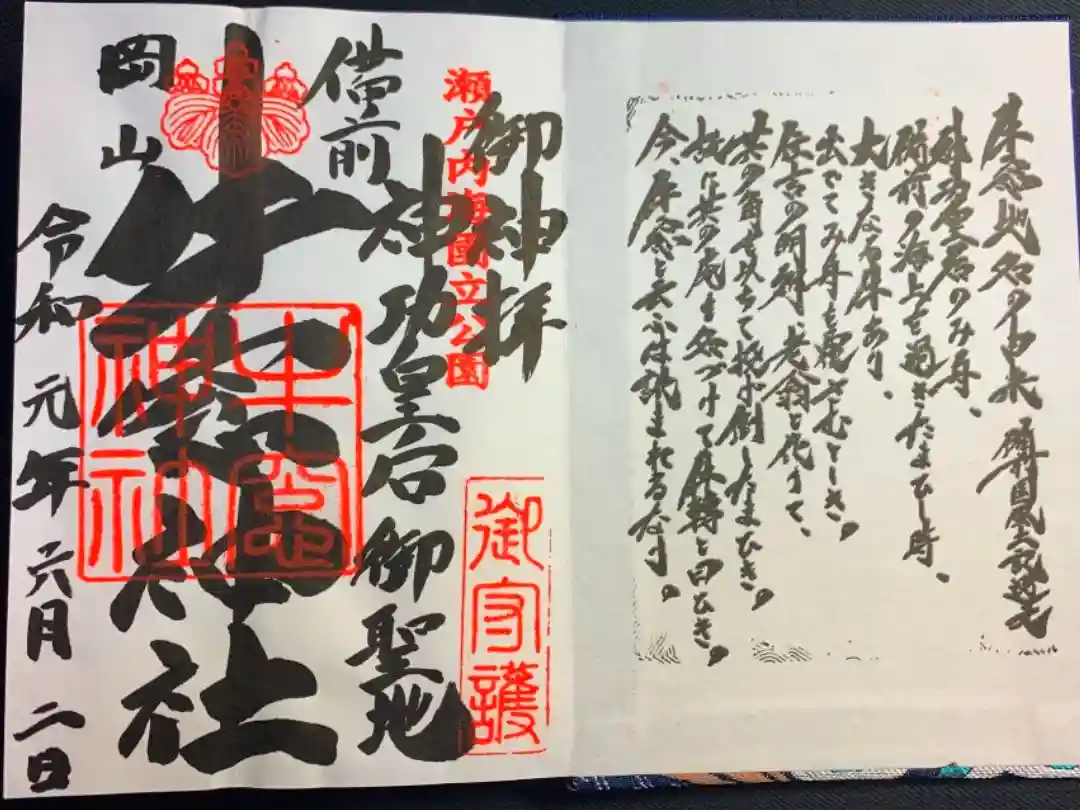 牛窓地名の由来 備前国風土記逸文
神功皇后のみ舟、
備前の海上を過ぎたまひし時、
大きなる牛あり、
出でてみ舟を覆さむとしき。
住吉の明神、老翁と化りて、
其の角を以ちて投げ倒したまひき。
故に其の處を名づけて牛轉と曰ひき。
今、牛窓と云ふは訛れるなり。
御神拝
瀬戸内海國立公園
御守護
神功皇后御聖地
備前
牛窓神社
牛窓
神社
岡山
令和元年六月二日